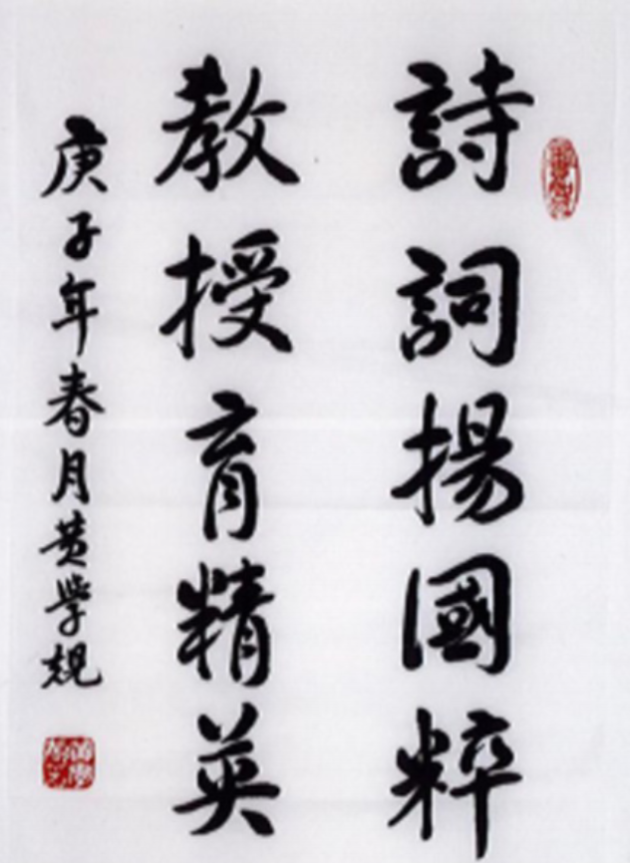 詩詞揚國粹
教授育精英
庚子年春月黄學規